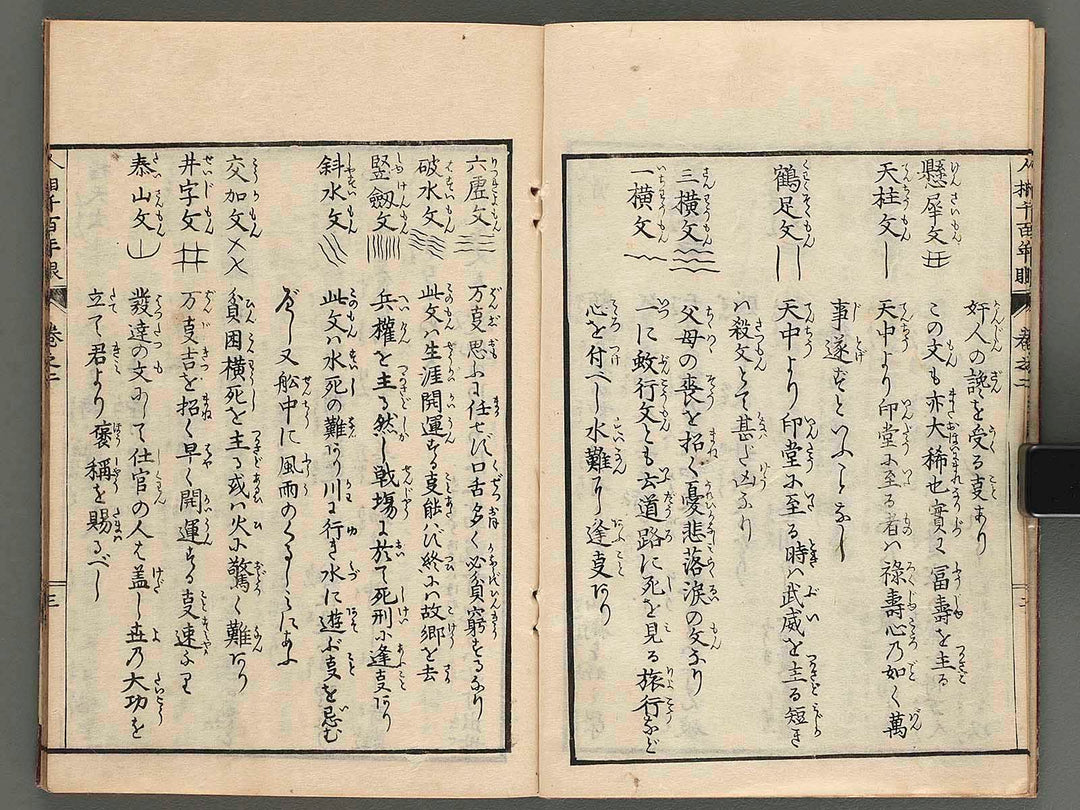 奸人の讒を受る叓あり
懸犀文 この文も亦大稀也實に冨壽を主る
天柱文 天中より印堂に至る者ハ祿壽心乃如く萬
事遂ずといふことなし
鶴足文 天中より印堂に至る時ハ武威を主る短き
ハ殺文とて甚だ凶なり
三横文 父母の喪を招く憂悲落涙の文なり
一横文 一に蚊行文とも云道路に死を見る旅行など
心を付べし水難に逢叓あり
六虚文 万叓思ふに任せず口舌多く必貧窮するなり
破水文 此文ハ生涯開運する叓能ハず終に故郷を去
竪劔文 兵權を主る然し戦場に於て死刑に逢叓あり
斜水文 此文ハ水死の難あり川に行き水に遊ぶ叓を忌む
べし又舩中に風雨のくるしみにあふ
交加文 貧困横死を主る或ハ火に驚く難あり
井字文 万叓吉を招く早く開運する叓速なり
泰山文 發達の文にして仕官の人は盖し世乃大功を
立て君より褒稱を賜るべし
人相千百年眼 巻之二 三